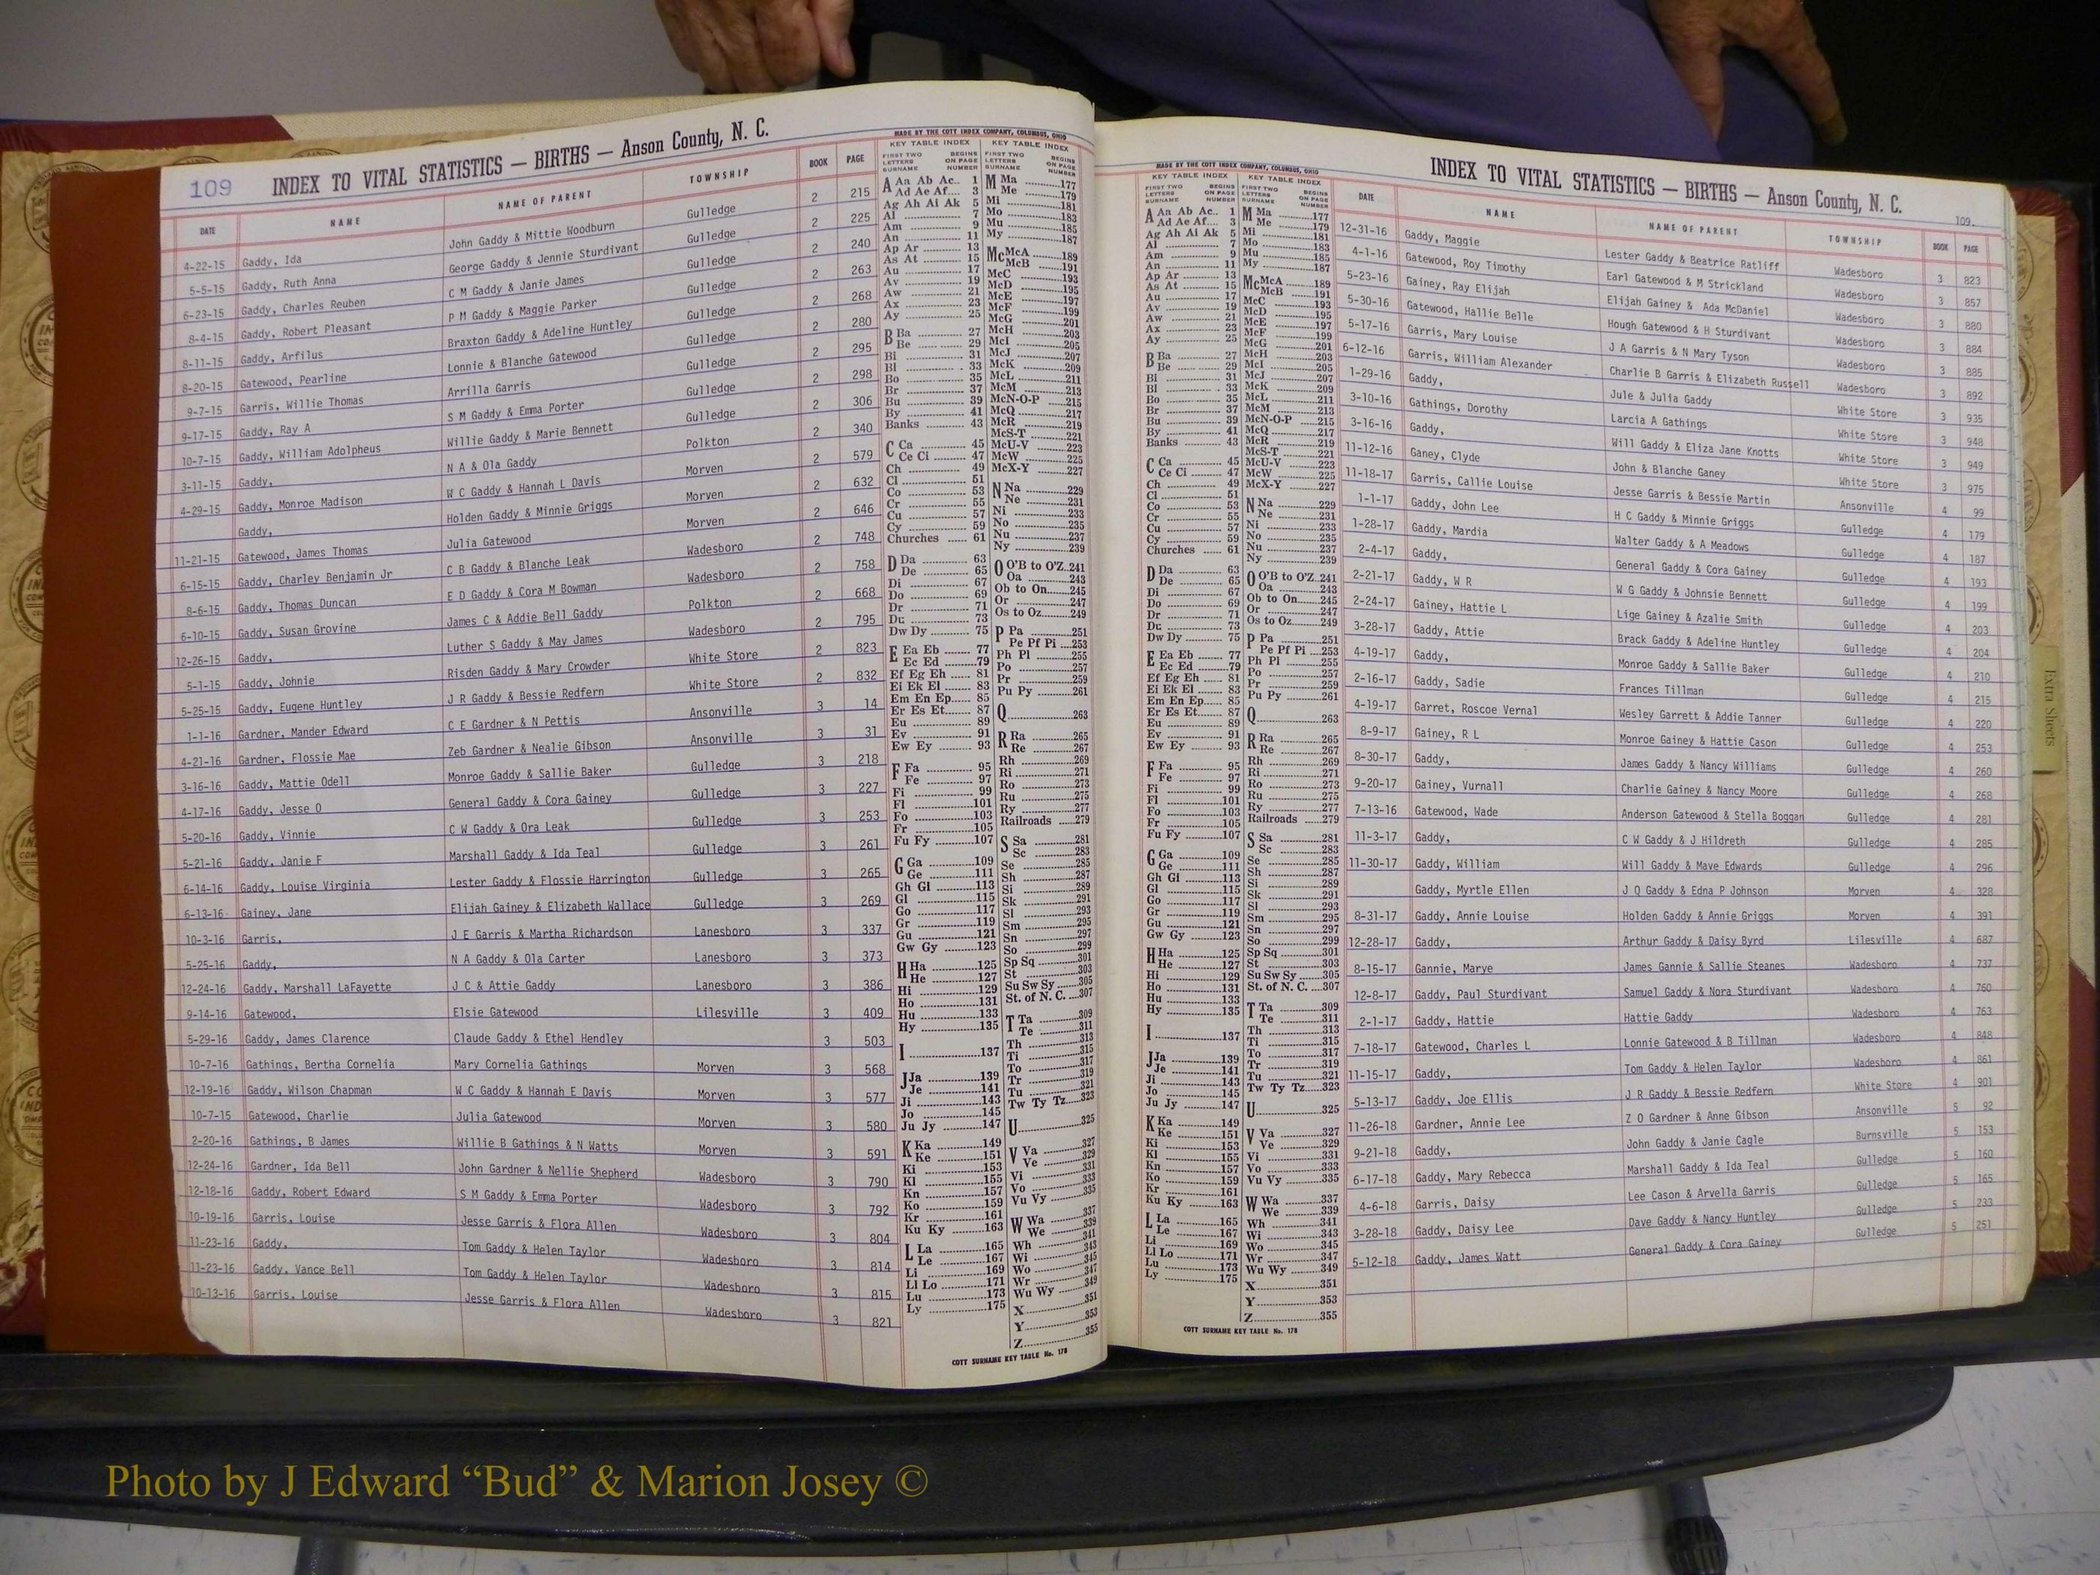 109 INDEX TO VITAL STATISTICS — BIRTHS — Anson County, N. C.
DATE NAME NAME OF PARENT TOWNSHIP BOOK PAGE
4-22-15 Gaddy, Ida John Gaddy & Mittie Woodburn Gulledge 2 215
5-5-15 Gaddy, Ruth Anna George Gaddy & Jennie Sturdivant Gulledge 2 225
6-23-15 Gaddy, Charles Reuben C M Gaddy & Janie James Gulledge 2 240
8-4-15 Gaddy, Robert Pleasant P M Gaddy & Maggie Parker Gulledge 2 263
8-11-15 Gaddy, Arfilus Braxton Gaddy & Adeline Huntley Gulledge 2 268
8-20-15 Gatewood, Pearline Lonnie & Blanche Gatewood Gulledge 2 280
9-7-15 Garris, Willie Thomas Arrilla Garris Gulledge 2 295
9-17-15 Gaddy, Ray A S M Gaddy & Emma Porter Gulledge 2 298
10-7-15 Gaddy, William Adolpheus Willie Gaddy & Marie Bennett Gulledge 2 306
3-11-15 Gaddy, N A & Ola Gaddy Polkton 2 340
4-29-15 Gaddy, Monroe Madison W C Gaddy & Hannah L Davis Morven 2 579
Gaddy, Holden Gaddy & Minnie Griggs Morven 2 632
11-21-15 Gatewood, James Thomas Julia Gatewood Morven 2 646
6-15-15 Gaddy, Charley Benjamin Jr C B Gaddy & Blanche Leak Wadesboro 2 748
8-6-15 Gaddy, Thomas Duncan E D Gaddy & Cora M Bowman Wadesboro 2 758
6-10-15 Gaddy, Susan Grovine James C & Addie Bell Gaddy Polkton 2 668
12-26-15 Gaddy, Luther S Gaddy & May James Wadesboro 2 795
5-1-15 Gaddy, Johnie Risden Gaddy & Mary Crowder White Store 2 823
5-25-15 Gaddy, Eugene Huntley J R Gaddy & Bessie Redfern White Store 2 832
1-1-16 Gardner, Mander Edward C E Gardner & N Pettis Ansonville 3 14
4-21-16 Gardner, Flossie Mae Zeb Gardner & Nealie Gibson Ansonville 3 31
3-16-16 Gaddy, Mattie Odell Monroe Gaddy & Sallie Baker Gulledge 3 218
4-17-16 Gaddy, Jesse O General Gaddy & Cora Gainey Gulledge 3 227
5-20-16 Gaddy, Vinnie C W Gaddy & Ora Leak Gulledge 3 253
5-21-16 Gaddy, Janie F Marshall Gaddy & Ida Teal Gulledge 3 261
6-14-16 Gaddy, Louise Virginia Lester Gaddy & Flossie Harrington Gulledge 3 265
6-13-16 Gainey, Jane Elijah Gainey & Elizabeth Wallace Gulledge 3 269
10-3-16 Garris, J E Garris & Martha Richardson Lanesboro 3 337
5-25-16 Gaddy, N A Gaddy & Ola Carter Lanesboro 3 373
12-24-16 Gaddy, Marshall LaFayette J C & Attie Gaddy Lanesboro 3 386
9-14-16 Gatewood, Elsie Gatewood Lilesville 3 409
5-29-16 Gaddy, James Clarence Claude Gaddy & Ethel Hendley 3 503
10-7-16 Gathings, Bertha Cornelia Mary Cornelia Gathings Morven 3 568
12-19-16 Gaddy, Wilson Chapman W C Gaddy & Hannah E Davis Morven 3 577
10-7-15 Gatewood, Charlie Julia Gatewood Morven 3 580
2-20-16 Gathings, B James Willie B Gathings & N Watts Morven 3 591
12-24-16 Gardner, Ida Bell John Gardner & Nellie Shepherd Wadesboro 3 790
12-18-16 Gaddy, Robert Edward S M Gaddy & Emma Porter Wadesboro 3 792
10-19-16 Garris, Louise Jesse Garris & Flora Allen Wadesboro 3 804
11-23-16 Gaddy, Tom Gaddy & Helen Taylor Wadesboro 3 814
11-23-16 Gaddy, Vance Bell Tom Gaddy & Helen Taylor Wadesboro 3 815
10-13-16 Garris, Louise Jesse Garris & Flora Allen Wadesboro 3 821
MADE BY THE COTT INDEX COMPANY, COLUMBUS, OHIO
KEY TABLE INDEX KEY TABLE INDEX
FIRST TWO LETTERS SURNAME BEGINS ON PAGE NUMBER
A Aa Ab Ac 1
Ad Ae Af 3
Ag Ah Ai Ak 5
Al 7
Am 9
An 11
Ap Ar 13
As At 15
Au 17
Av 19
Aw 21
Ax 23
Ay 25
B Ba 27
Be 29
Bi 31
Bl 33
Bo 35
Br 37
Bu 39
By 41
Banks 43
C Ca 45
Ce Ci 47
Ch 49
Cl 51
Co 53
Cr 55
Cu 57
Cy 59
Churches 61
D Da 63
De 65
Di 67
Do 69
Dr 71
Du 73
Dw Dy 75
E Ea Eb 77
Ec Ed 79
Ef Eg Eh 81
Ei Ek El 83
Em En Ep 85
Er Es Et 87
Eu 89
Ev 91
Ew Ey 93
F Fa 95
Fe 97
Fi 99
Fl 101
Fo 103
Fr 105
Fu Fy 107
G Ga 109
Ge 111
Gh Gi 113
Gl 115
Go 117
Gr 119
Gu 121
Gw Gy 123
H Ha 125
He 127
Hi 129
Ho 131
Hu 133
Hy 135
I 137
J Ja 139
Je 141
Ji 143
Jo 145
Ju Jy 147
K Ka 149
Ke 151
Ki 153
Kl 155
Kn 157
Ko 159
Kr 161
Ku Ky 163
L La 165
Le 167
Li 169
Ll Lo 171
Lu 173
Ly 175
M Ma 177
Me 179
Mi 181
Mo 183
Mu 185
My 187
Mc McA 189
McB 191
McC 193
McD 195
McE 197
McF 199
McG 201
McH 203
McI 205
McJ 207
McK 209
McL 211
McM 213
McN-O-P 215
McQ 217
McR 219
McS-T 221
McU-V 223
McW 225
McX-Y 227
N Na 229
Ne 231
Ni 233
No 235
Nu 237
Ny 239
O O'B to O'Z 241
Oa 243
Ob to On 245
Or 247
Os to Oz 249
P Pa 251
Pe Pf Pi 253
Ph Pl 255
Po 257
Pr 259
Pu Py 261
Q 263
R Ra 265
Re 267
Rh 269
Ri 271
Ro 273
Ru 275
Ry 277
Railroads 279
S Sa 281
Sc 283
Se 285
Sh 287
Si 289
Sk 291
Sl 293
Sm 295
Sn 297
So 299
Sp Sq 301
St 303
Su Sw Sy 305
St. of N. C. 307
T Ta 309
Te 311
Th 313
Ti 315
To 317
Tr 319
Tu 321
Tw Ty Tz 323
U 325
V Va 327
Ve 329
Vi 331
Vo 333
Vu Vy 335
W Wa 337
We 339
Wh 341
Wi 343
Wo 345
Wr 347
Wu Wy 349
X 351
Y 353
Z 355
COTT SURNAME KEY TABLE No. 178
MADE BY THE COTT INDEX COMPANY, COLUMBUS, OHIO
KEY TABLE INDEX KEY TABLE INDEX
FIRST TWO LETTERS SURNAME BEGINS ON PAGE NUMBER
A Aa Ab Ac 1
Ad Ae Af 3
Ag Ah Ai Ak 5
Al 7
Am 9
An 11
Ap Ar 13
As At 15
Au 17
Av 19
Aw 21
Ax 23
Ay 25
B Ba 27
Be 29
Bi 31
Bl 33
Bo 35
Br 37
Bu 39
By 41
Banks 43
C Ca 45
Ce Ci 47
Ch 49
Cl 51
Co 53
Cr 55
Cu 57
Cy 59
Churches 61
D Da 63
De 65
Di 67
Do 69
Dr 71
Du 73
Dw Dy 75
E Ea Eb 77
Ec Ed 79
Ef Eg Eh 81
Ei Ek El 83
Em En Ep 85
Er Es Et 87
Eu 89
Ev 91
Ew Ey 93
F Fa 95
Fe 97
Fi 99
Fl 101
Fo 103
Fr 105
Fu Fy 107
G Ga 109
Ge 111
Gh Gi 113
Gl 115
Go 117
Gr 119
Gu 121
Gw Gy 123
H Ha 125
He 127
Hi 129
Ho 131
Hu 133
Hy 135
I 137
J Ja 139
Je 141
Ji 143
Jo 145
Ju Jy 147
K Ka 149
Ke 151
Ki 153
Kl 155
Kn 157
Ko 159
Kr 161
Ku Ky 163
L La 165
Le 167
Li 169
Ll Lo 171
Lu 173
Ly 175
M Ma 177
Me 179
Mi 181
Mo 183
Mu 185
My 187
Mc McA 189
McB 191
McC 193
McD 195
McE 197
McF 199
McG 201
McH 203
McI 205
McJ 207
McK 209
McL 211
McM 213
McN-O-P 215
McQ 217
McR 219
McS-T 221
McU-V 223
McW 225
McX-Y 227
N Na 229
Ne 231
Ni 233
No 235
Nu 237
Ny 239
O O'B to O'Z 241
Oa 243
Ob to On 245
Or 247
Os to Oz 249
P Pa 251
Pe Pf Pi 253
Ph Pl 255
Po 257
Pr 259
Pu Py 261
Q 263
R Ra 265
Re 267
Rh 269
Ri 271
Ro 273
Ru 275
Ry 277
Railroads 279
S Sa 281
Sc 283
Se 285
Sh 287
Si 289
Sk 291
Sl 293
Sm 295
Sn 297
So 299
Sp Sq 301
St 303
Su Sw Sy 305
St. of N. C. 307
T Ta 309
Te 311
Th 313
Ti 315
To 317
Tr 319
Tu 321
Tw Ty Tz 323
U 325
V Va 327
Ve 329
Vi 331
Vo 333
Vu Vy 335
W Wa 337
We 339
Wh 341
Wi 343
Wo 345
Wr 347
Wu Wy 349
X 351
Y 353
Z 355
COTT SURNAME KEY TABLE No. 178
INDEX TO VITAL STATISTICS — BIRTHS — Anson County, N. C. 109
DATE NAME NAME OF PARENT TOWNSHIP BOOK PAGE
12-31-16 Gaddy, Maggie Lester Gaddy & Beatrice Ratliff Wadesboro 3 823
4-1-16 Gatewood, Roy Timothy Earl Gatewood & M Strickland Wadesboro 3 857
5-23-16 Gainey, Ray Elijah Elijah Gainey & Ada McDaniel Wadesboro 3 880
5-30-16 Gatewood, Hallie Belle Hough Gatewood & H Sturdivant Wadesboro 3 884
5-17-16 Garris, Mary Louise J A Garris & N Mary Tyson Wadesboro 3 885
6-12-16 Garris, William Alexander Charlie B Garris & Elizabeth Russell Wadesboro 3 892
1-29-16 Gaddy, Jule & Julia Gaddy White Store 3 935
3-10-16 Gathings, Dorothy Larcia A Gathings White Store 3 948
3-16-16 Gaddy, Will Gaddy & Eliza Jane Knotts White Store 3 949
11-12-16 Ganey, Clyde John & Blanche Ganey White Store 3 975
11-18-17 Garris, Callie Louise Jesse Garris & Bessie Martin Ansonville 4 99
1-1-17 Gaddy, John Lee H C Gaddy & Minnie Griggs Gulledge 4 179
1-28-17 Gaddy, Mardia Walter Gaddy & A Meadows Gulledge 4 187
2-4-17 Gaddy, General Gaddy & Cora Gainey Gulledge 4 193
2-21-17 Gaddy, W R W G Gaddy & Johnsie Bennett Gulledge 4 199
2-24-17 Gainey, Hattie L Lige Gainey & Azalie Smith Gulledge 4 203
3-28-17 Gaddy, Attie Brack Gaddy & Adeline Huntley Gulledge 4 204
4-19-17 Gaddy, Monroe Gaddy & Sallie Baker Gulledge 4 210
2-16-17 Gaddy, Sadie Frances Tillman Gulledge 4 215
4-19-17 Garret, Roscoe Vernal Wesley Garrett & Addie Tanner Gulledge 4 220
8-9-17 Gainey, R L Monroe Gainey & Hattie Cason Gulledge 4 253
8-30-17 Gaddy, James Gaddy & Nancy Williams Gulledge 4 260
9-20-17 Gainey, Vurnall Charlie Gainey & Nancy Moore Gulledge 4 268
7-13-16 Gatewood, Wade Anderson Gatewood & Stella Boggan Gulledge 4 281
11-3-17 Gaddy, C W Gaddy & J Hildreth Gulledge 4 285
11-30-17 Gaddy, William Will Gaddy & Mave Edwards Gulledge 4 296
Gaddy, Myrtle Ellen J Q Gaddy & Edna P Johnson Morven 4 328
8-31-17 Gaddy, Annie Louise Holden Gaddy & Annie Griggs Morven 4 391
12-28-17 Gaddy, Arthur Gaddy & Daisy Byrd Lilesville 4 687
8-15-17 Gannie, Marye James Gannie & Sallie Steanes Wadesboro 4 737
12-8-17 Gaddy, Paul Sturdivant Samuel Gaddy & Nora Sturdivant Wadesboro 4 760
2-1-17 Gaddy, Hattie Hattie Gaddy Wadesboro 4 763
7-18-17 Gatewood, Charles L Lonnie Gatewood & B Tillman Wadesboro 4 848
11-15-17 Gaddy, Tom Gaddy & Helen Taylor Wadesboro 4 861
5-13-17 Gaddy, Joe Ellis J R Gaddy & Bessie Redfern White Store 4 901
11-26-18 Gardner, Annie Lee Z O Gardner & Anne Gibson Ansonville 5 92
9-21-18 Gaddy, John Gaddy & Janie Cagle Burnsville 5 153
6-17-18 Gaddy, Mary Rebecca Marshall Gaddy & Ida Teal Gulledge 5 160
4-6-18 Garris, Daisy Lee Cason & Arvella Garris Gulledge 5 165
3-28-18 Gaddy, Daisy Lee Dave Gaddy & Nancy Huntley Gulledge 5 233
5-12-18 Gaddy, James Watt General Gaddy & Cora Gainey Gulledge 5 251
Extra Sheets
Photo by J Edward “Bud” & Marion Josey ©